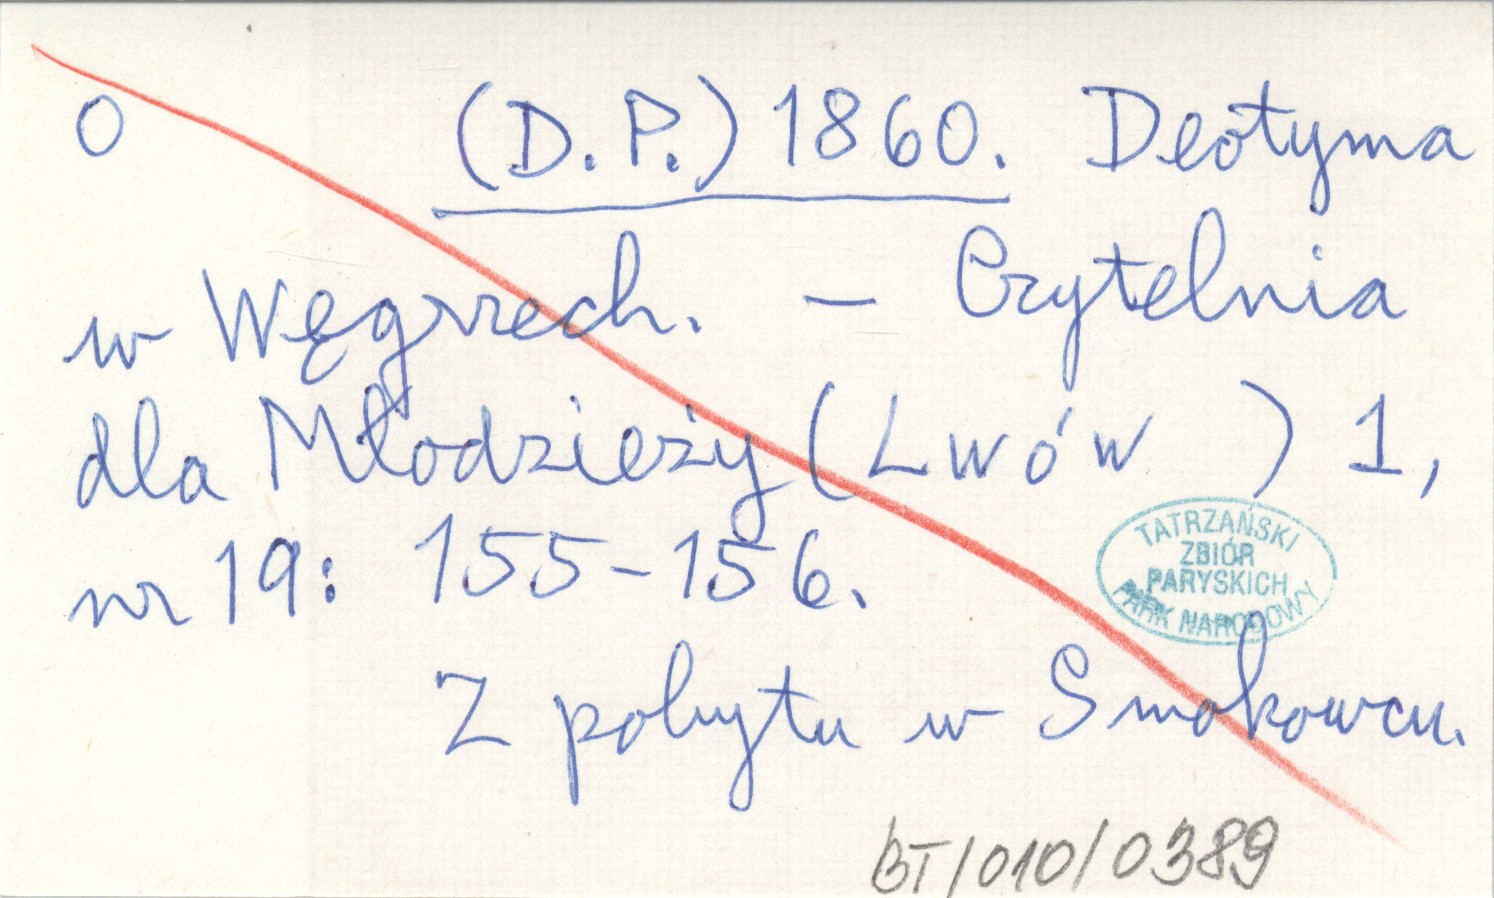 O (D.P.) 1860. Deotyma
w Węgrzech. — Czytelnia
dla Młodzieży (Lwów) 1,
nr 19: 155-156.
TATRZAŃSKI
ZBIÓR
PARYSKICH
PARK NARODOWY
Z pobytu w Smokowcu.
BT/010/0389